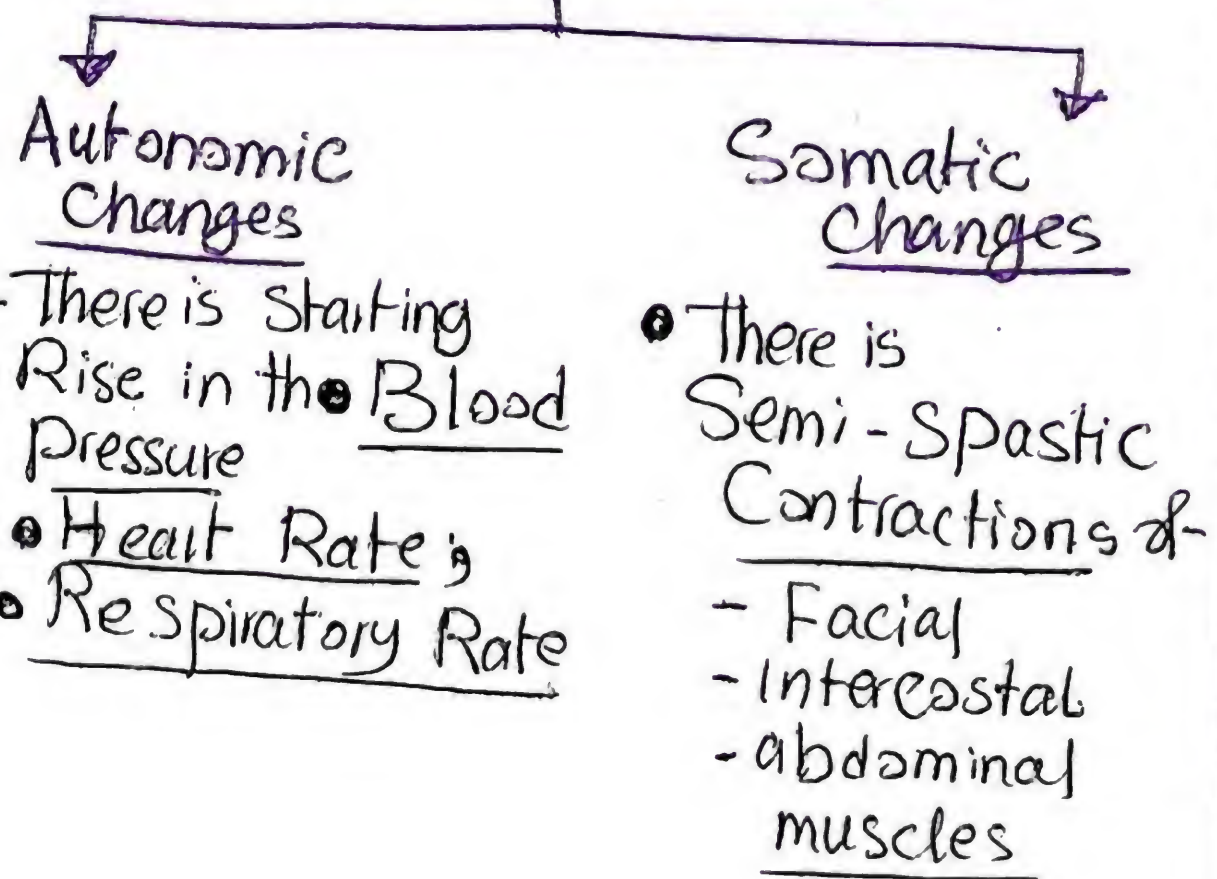 Autonomic
Changes
- There is Starting
Rise in the Blood
Pressure
• Heart Rate ;
• Respiratory Rate
Somatic
Changes
• There is
Semi-Spastic
Contractions of
- Facial
- Intercostal
- abdominal
muscles